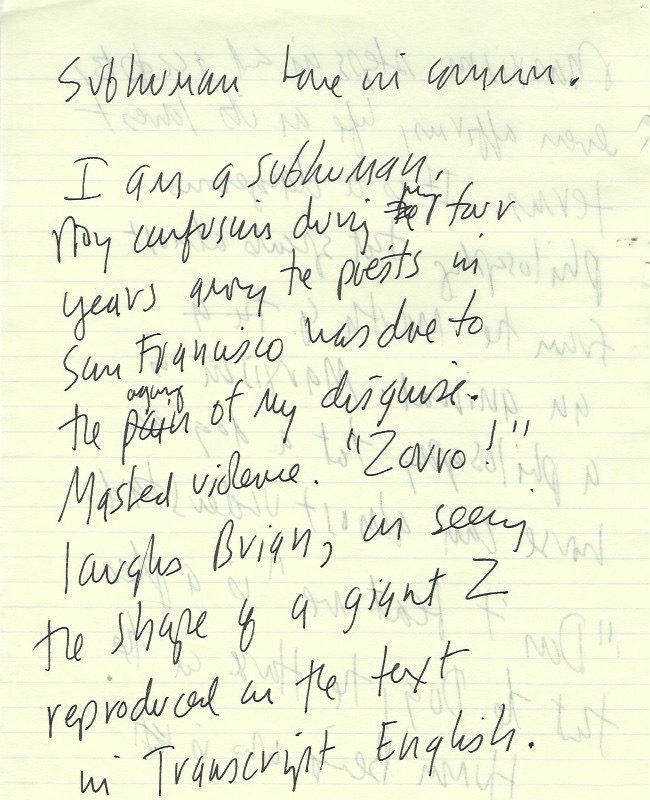 Subhuman love in common.
I am a subhuman.
My confusion during my four
years among the poets in
San Francisco was due to
the aging of my disguise.
Masked violence. "Zorro!"
laughs Brian, on seeing
the shape of a giant Z
reproduced in the text
in Transcript English.